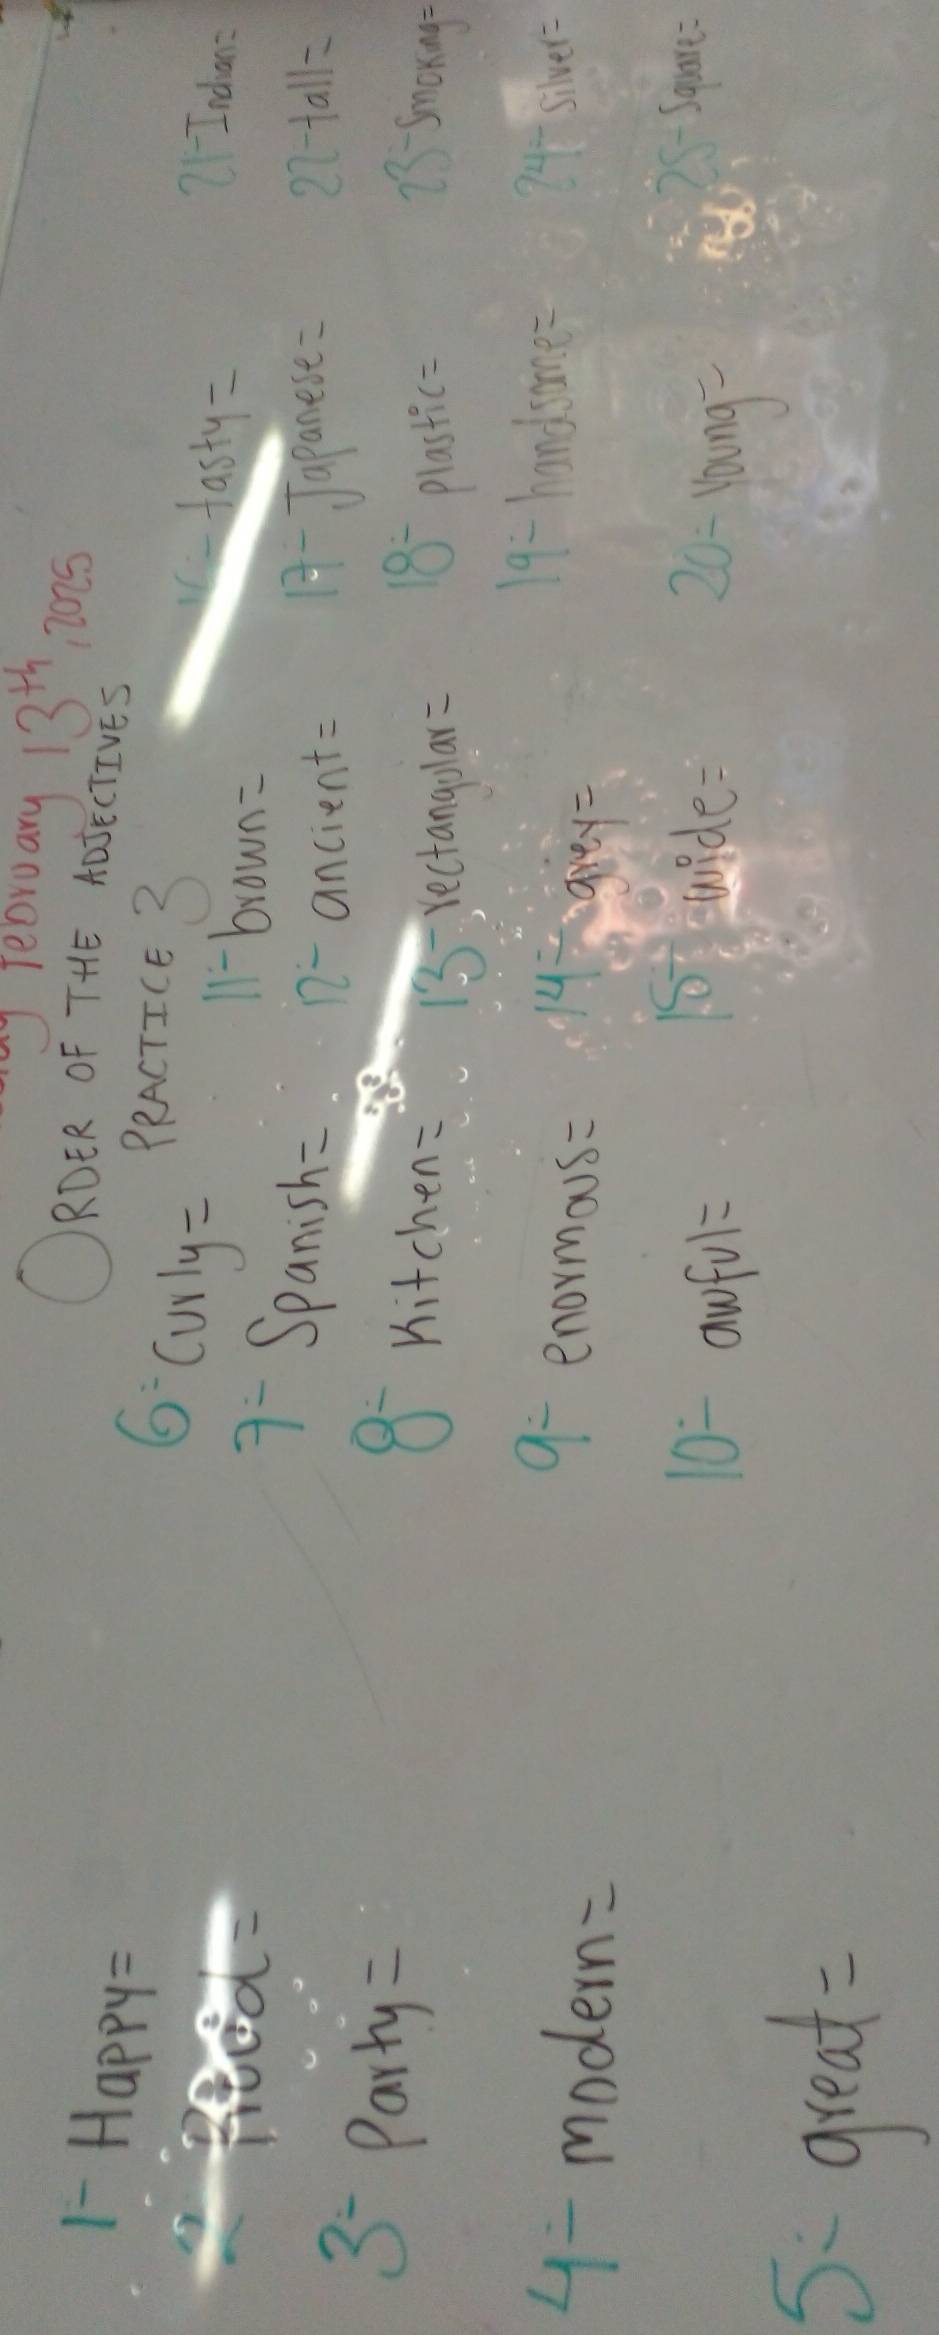 February 13th, 2025
ORDER OF THE ADJECTIVES
PRACTICE 3
1- Happy=
2-
3- Party=
4- modern=
5- great=
6- Curly=
7- Spanish=
8- Kitchen=
9- enormous=
10- awful=
11- brown=
12- ancient=
13- rectangular=
14- grey=
15- wide=
16- tasty=
17- Japanese=
18- plastic=
19- handsome=
20- young=
21- Indian=
22- tall=
23- Smoking=
24- Silver=
25- Square=